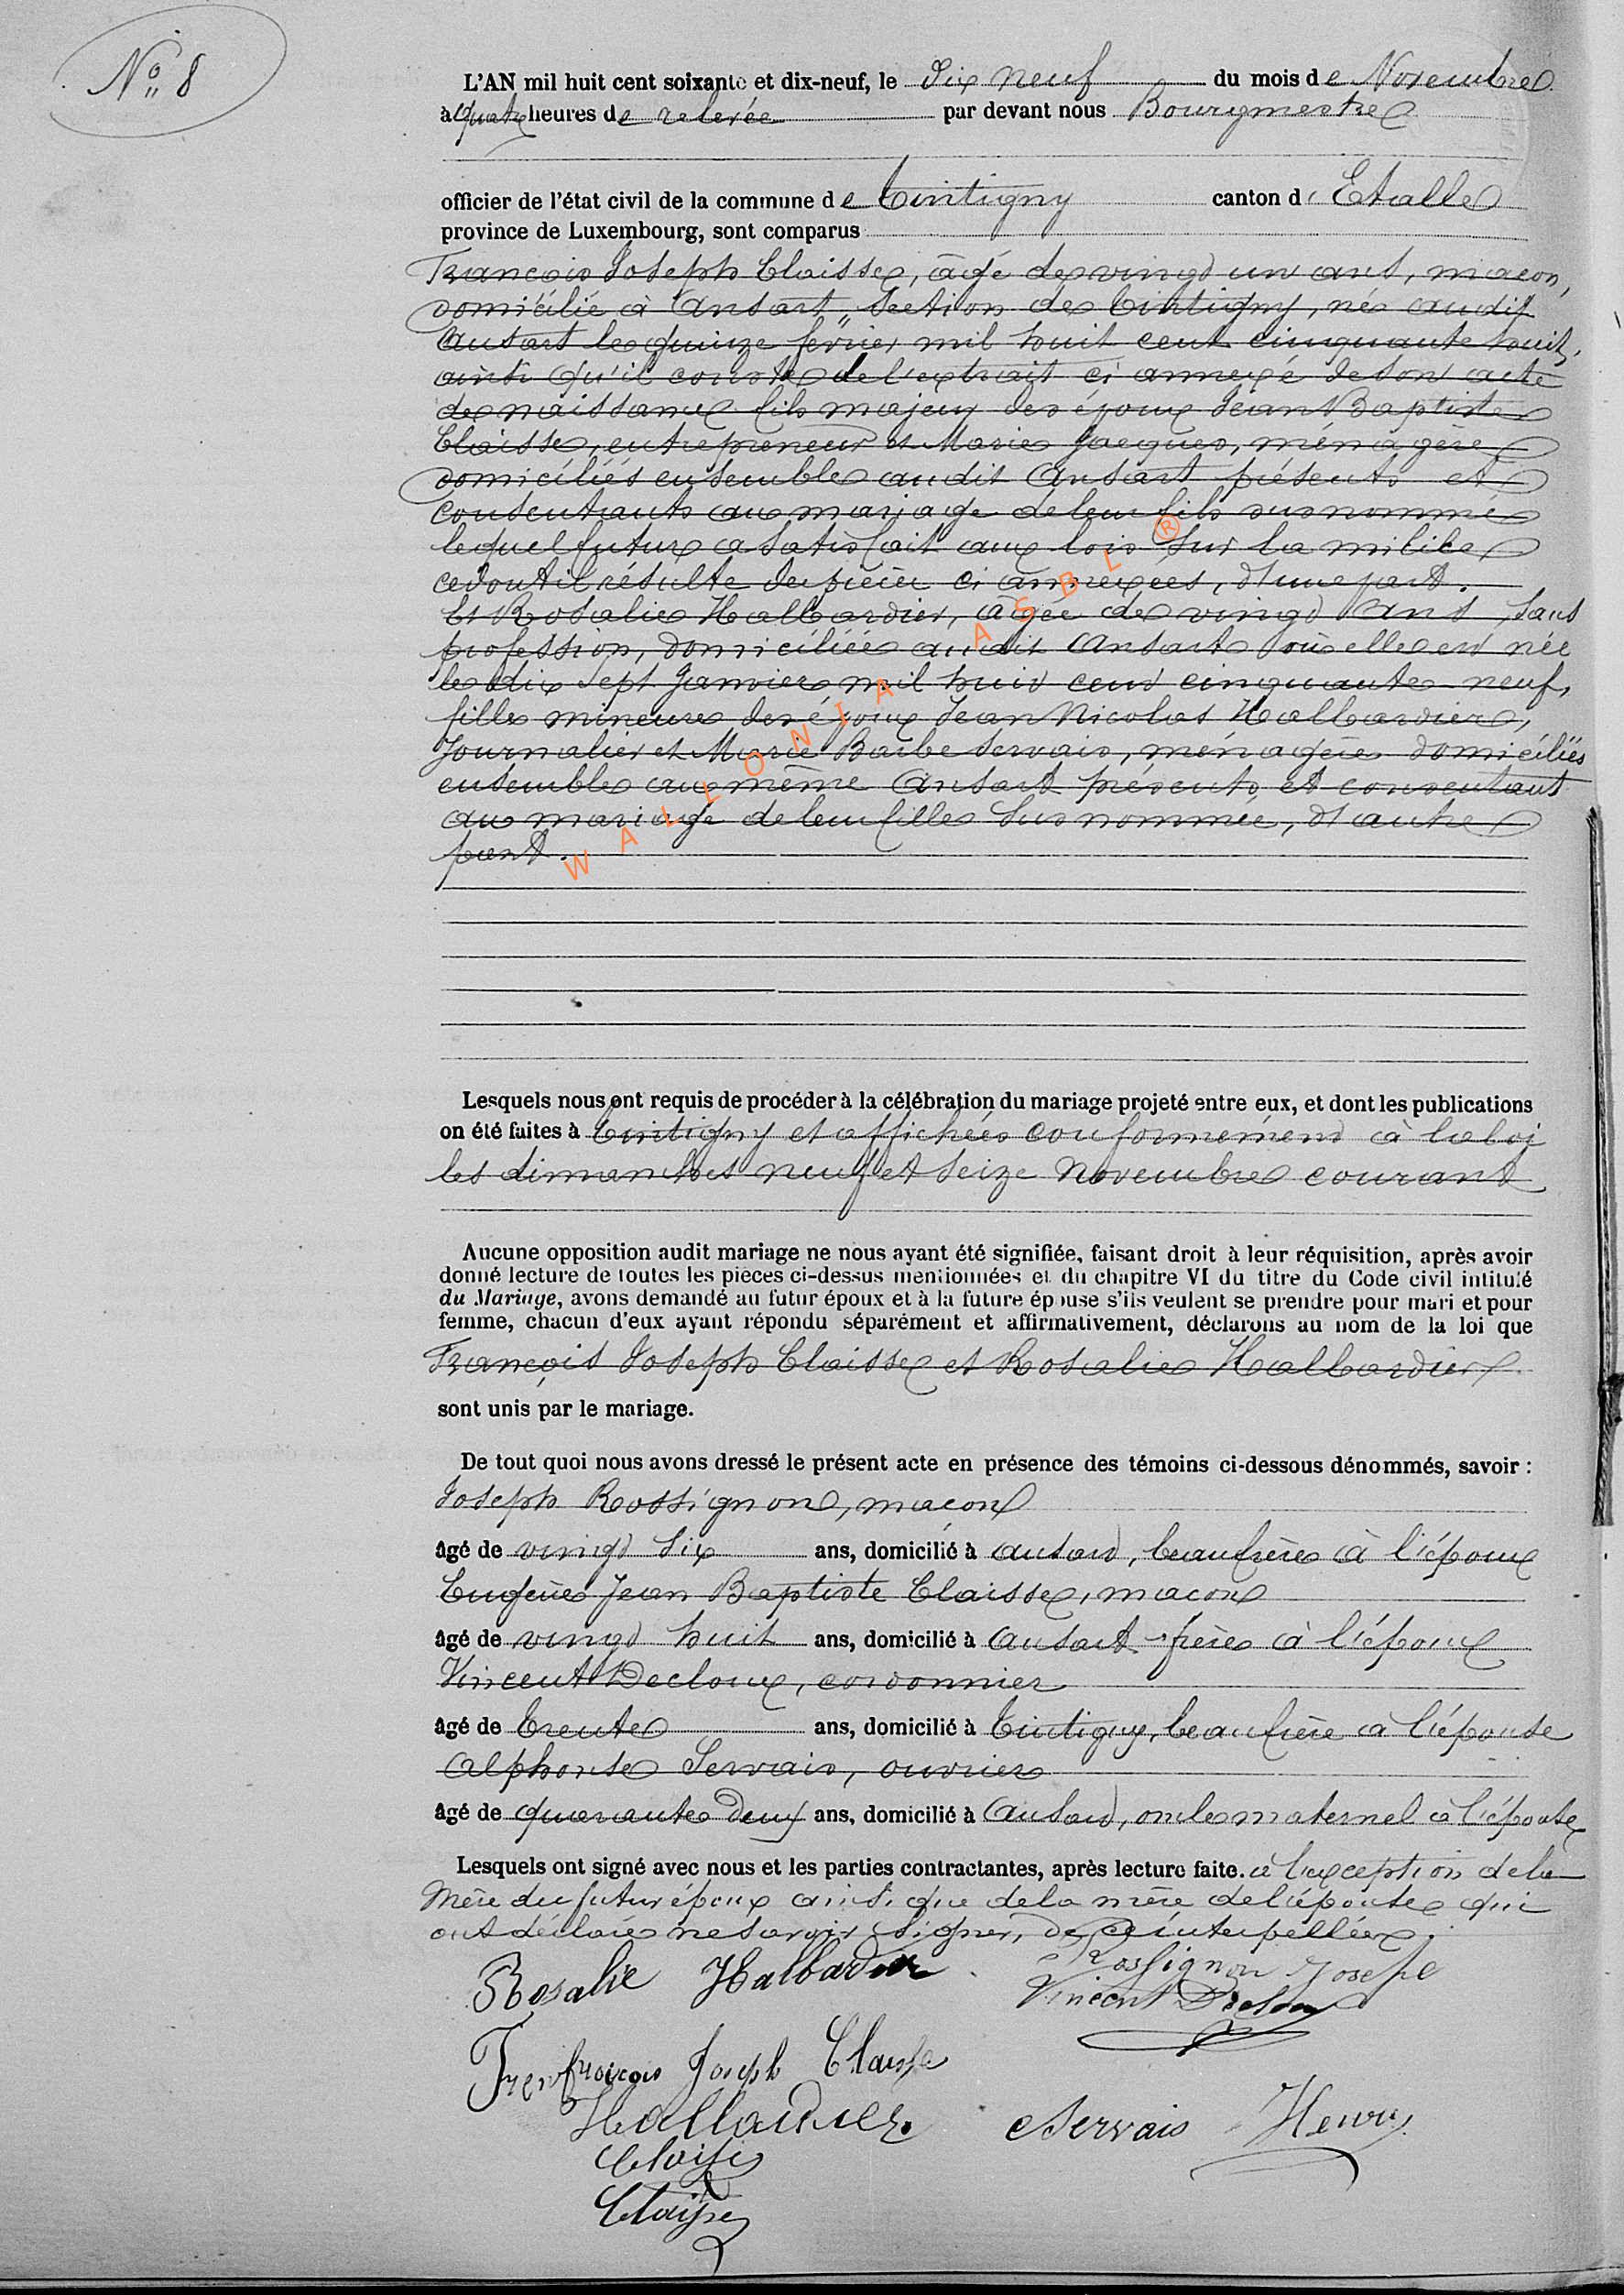 N° 8
L'AN mil huit cent soixante et dix-neuf, le dix neuf du mois de Novembre
à quatre heures de relevée par devant nous Bourgmestre
officier de l'état civil de la commune de Tintigny canton d' Etalle
province de Luxembourg, sont comparus
François Joseph Claisse, âgé de vingt un ans, maçon,
domicilié à Ansart, section de Tintigny, né audit
Ansart le quinze février mil huit cent cinquante huit,
ainsi qu'il conste de l'extrait ci annexé de son acte
de naissance fils majeur des époux Jean Baptiste
Claisse, entrepreneur et Marie Jacques, ménagère
domiciliés ensemble audit Ansart présents et
consentants au mariage de leur fils susnommé
lequel futur a satisfait aux lois sur la milice
ce dont il résulte des pièces ci annexées, d'une part.
Et Rosalie Halbardier, âgée de vingt ans, sans
profession, domiciliée audit Ansart où elle est née
le dix sept Janvier mil huit cent cinquante neuf,
fille mineure des époux Jean Nicolas Halbardier,
Journalier et Marie Barbe Servais, ménagère domiciliés
ensemble au même Ansart présents et consentant
au mariage de leur fille susnommée, d'autre
part.
WALLONIA ASBL ®
Lesquels nous ont requis de procéder à la célébration du mariage projeté entre eux, et dont les publications
on été faites à Tintigny et affichées conformément à la loi
les dimanches neuf et seize Novembre courant
Aucune opposition audit mariage ne nous ayant été signifiée, faisant droit à leur réquisition, après avoir
donné lecture de toutes les pièces ci-dessus mentionnées et du chapitre VI du titre du Code civil intitulé
du Mariage, avons demandé au futur époux et à la future épouse s'ils veulent se prendre pour mari et pour
femme, chacun d'eux ayant répondu séparément et affirmativement, déclarons au nom de la loi que
François Joseph Claisse et Rosalie Halbardier
sont unis par le mariage.
De tout quoi nous avons dressé le présent acte en présence des témoins ci-dessous dénommés, savoir :
Joseph Rossignon, maçon
âgé de vingt six ans, domicilié à Ansart, beaufrère à l'époux
Eugène Jean Baptiste Claisse, macon
âgé de vingt huit ans, domicilié à Ansart frère à l'époux
Vincent Decloux, cordonnier
âgé de trente ans, domicilié à Tintigny, beaufrère à l'épouse
Alphonse Servais, ouvrier
âgé de quarante deux ans, domicilié à Ansart, oncle maternel à l'épouse
Lesquels ont signé avec nous et les parties contractantes, après lecture faite. à l'exception de la
Mère du futur époux ainsi que de la mère de l'épouse qui
ont déclaré ne savoir signer, de ce interpellées.
Rosalie Halbardier
Rossignon Joseph
Vincent Decloux
François Joseph Claisse
Halbardier
Servais Henry
Claisse
Claisse